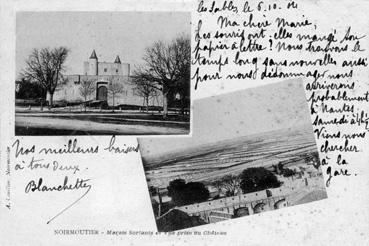 les Sables le 6.10.04
Ma chère Marie,
Les souris ont-elles mangé ton
papier à lettre? Nous trouvons le
temps long sans nouvelles, aussi
pour nous dédommager nous
arriverons
probablement
à Nantes
samedi à
Viens nous
chercher
à la
gare.
Nos meilleurs baisers
à tous deux.
Blanchette
NOIRMOUTIER - Marais Salants et Vue prise du Château